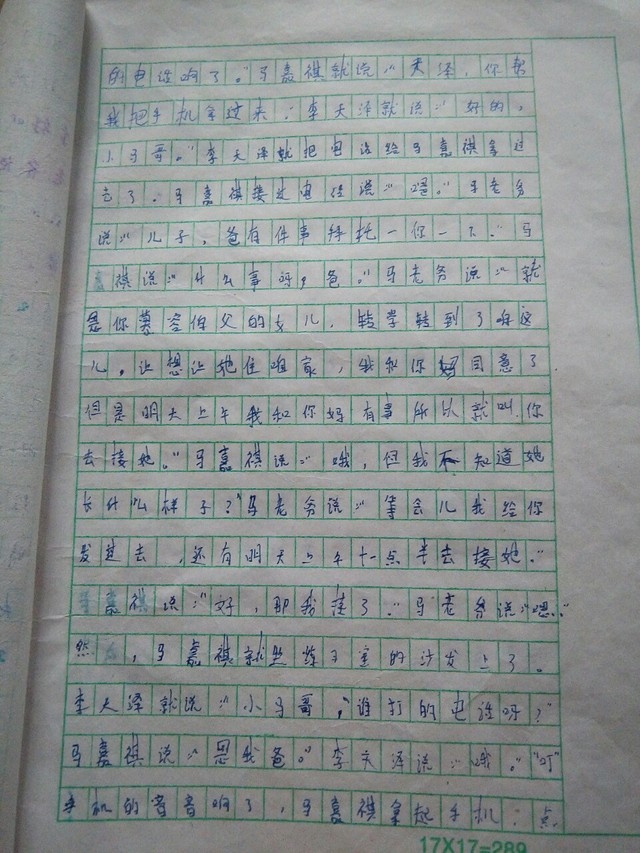 的电话响了。"马嘉祺就说:"天泽,你帮
我把手机拿过来."李天泽就说:"好的,
小马哥。"李天泽就把电话给马嘉祺拿过
去了.马嘉祺接过电话说:"嗯."马老爷
说:"儿子,爸有件事拜托一你一下."马
嘉祺说:"什么事吗,爸。"马老爷说:"就
是你慕容伯父的女儿.转学转到了咱这
儿,让想让她住咱家,我和你妈同意了.
但是明天上午我和你妈有事所以就叫你
去接她。"马嘉祺说:"哦,但我不知道她
长什么样子?"马老爷说:"等会儿我给你
发过去,还有明天上午十一点半去接她."
嘉祺说:"好,那我挂了."马老爷说:"嗯."
然,马嘉祺就坐练习室的沙发上了.
李天泽就说:"小马哥,谁打的电话呀?"
马嘉祺说:"是我爸。"李天泽说:"哦。""叮"
手机的音响了,马嘉祺拿起手机:点
17X17=289